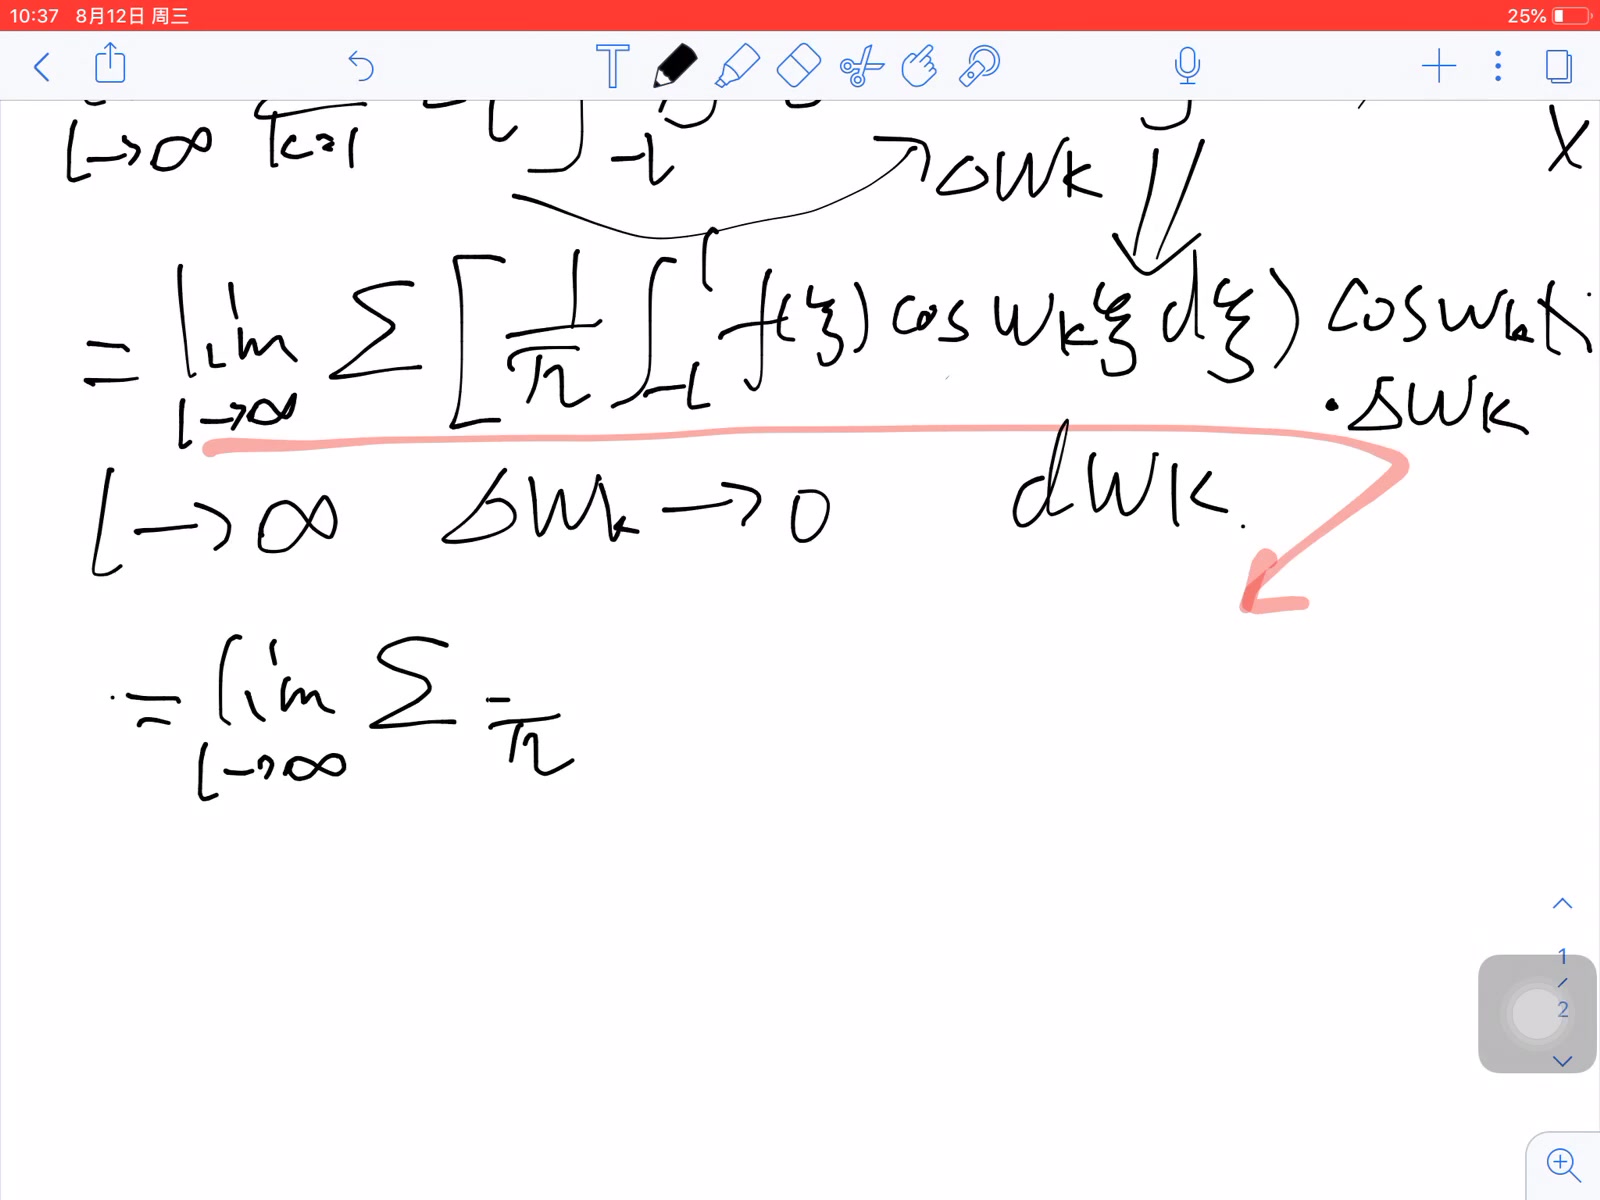 10:37 8月12日 周三 25%
l→∞ k=1 -l ΔWk X
= lim l→∞ Σ [ 1/π ∫_{-l}^{l} f(ξ) cos Wkξ dξ ) cos Wk
· ΔWk
l → ∞ ΔWk → 0 dWk.
= lim l→∞ Σ -/π
1 / 2